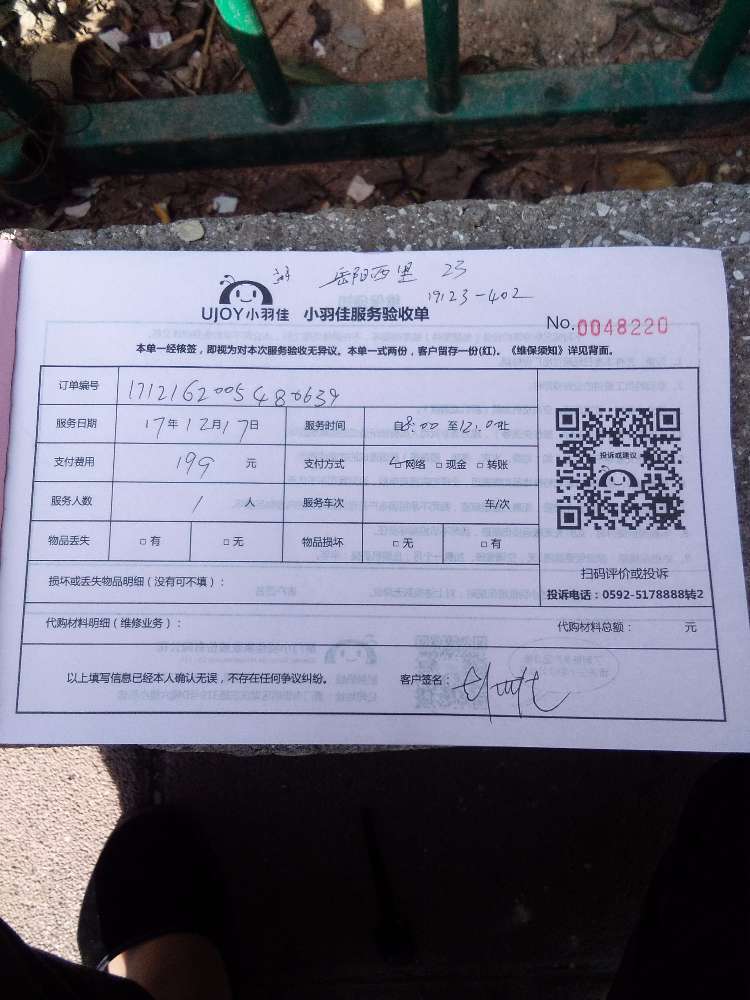 岳阳西里 23
19123-402
UJOY小羽佳 小羽佳服务验收单
No.0048220
本单一经核签，即视为对本次服务验收无异议。本单一式两份，客户留存一份(红)。《维保须知》详见背面。
订单编号
服务日期 17年12月17日 服务时间 自8:00至12:00止
支付费用 199 元 支付方式 网络 □现金 □转账
服务人数 1 人 服务车次 车/次
物品丢失 □有 □无 物品损坏 □无 □有
投诉或建议
扫码评价或投诉
投诉电话：0592-5178888转2
损坏或丢失物品明细（没有可不填）：
代购材料明细（维修业务）： 代购材料总额： 元
以上填写信息已经本人确认无误，不存在任何争议纠纷。 客户签名：